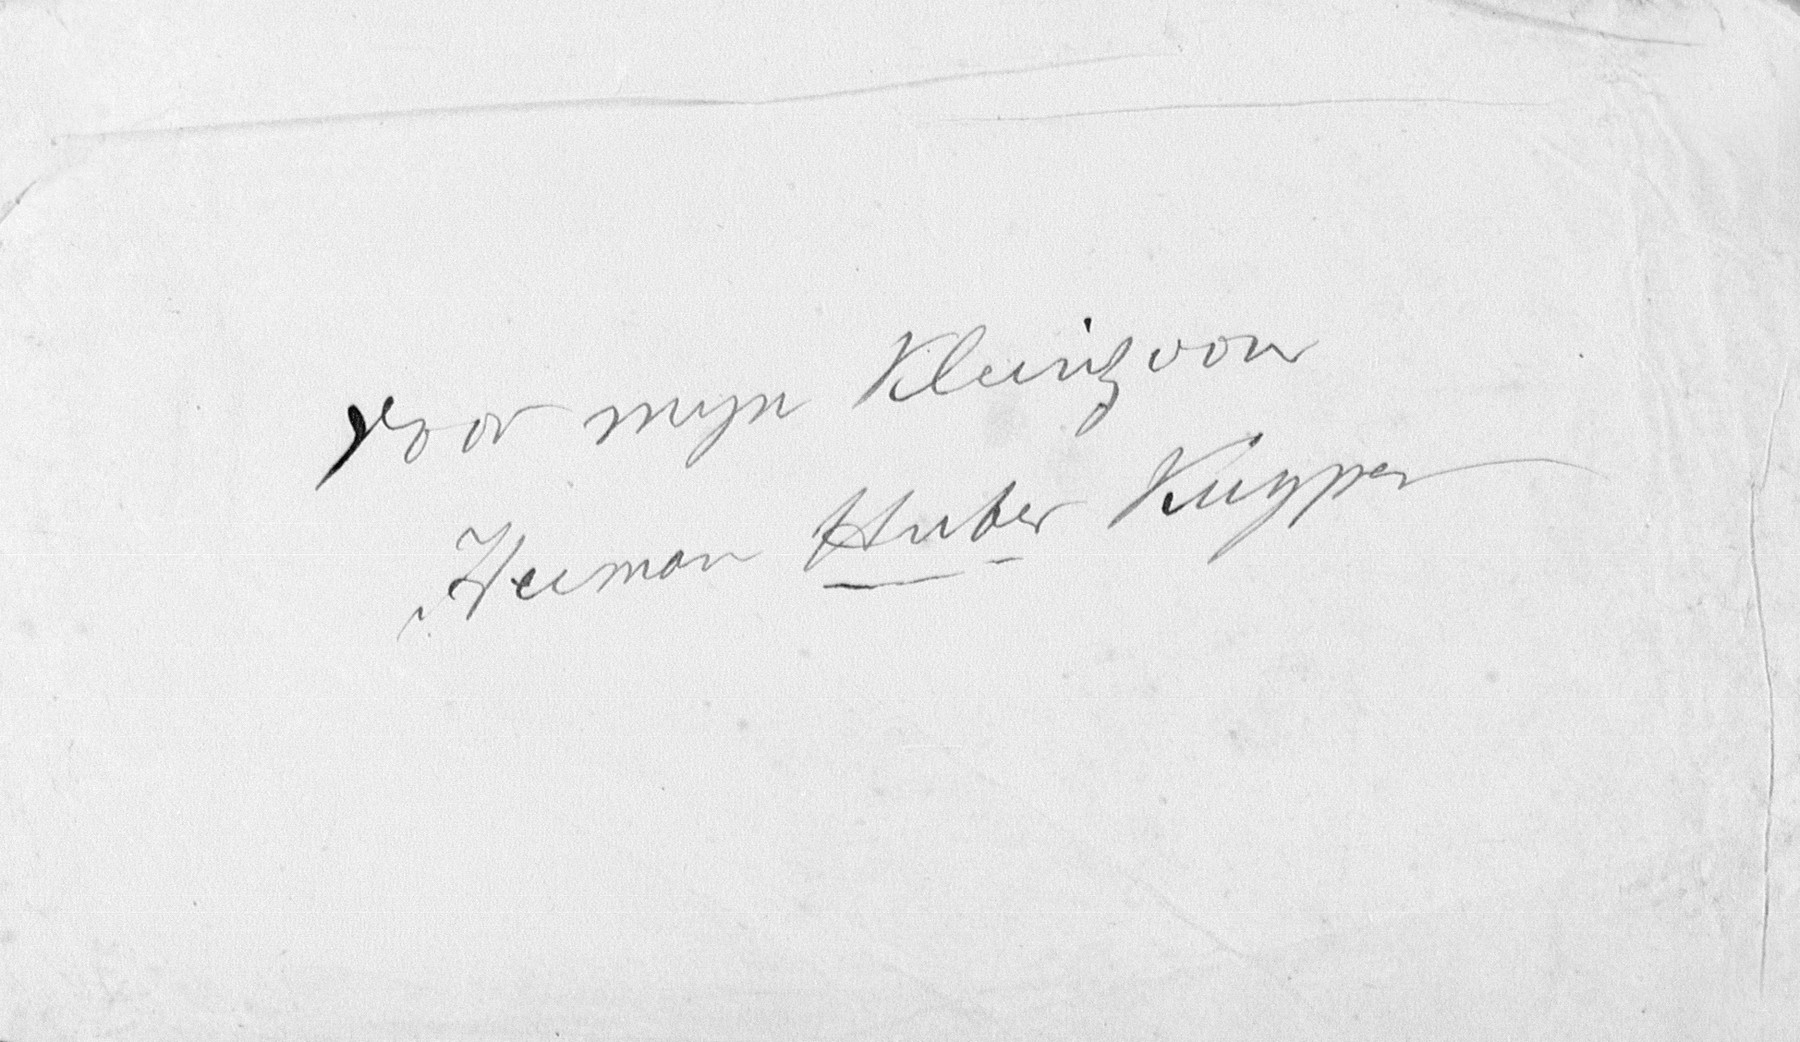 voor mijn Kleinzoon
Herman Huber Kuyper